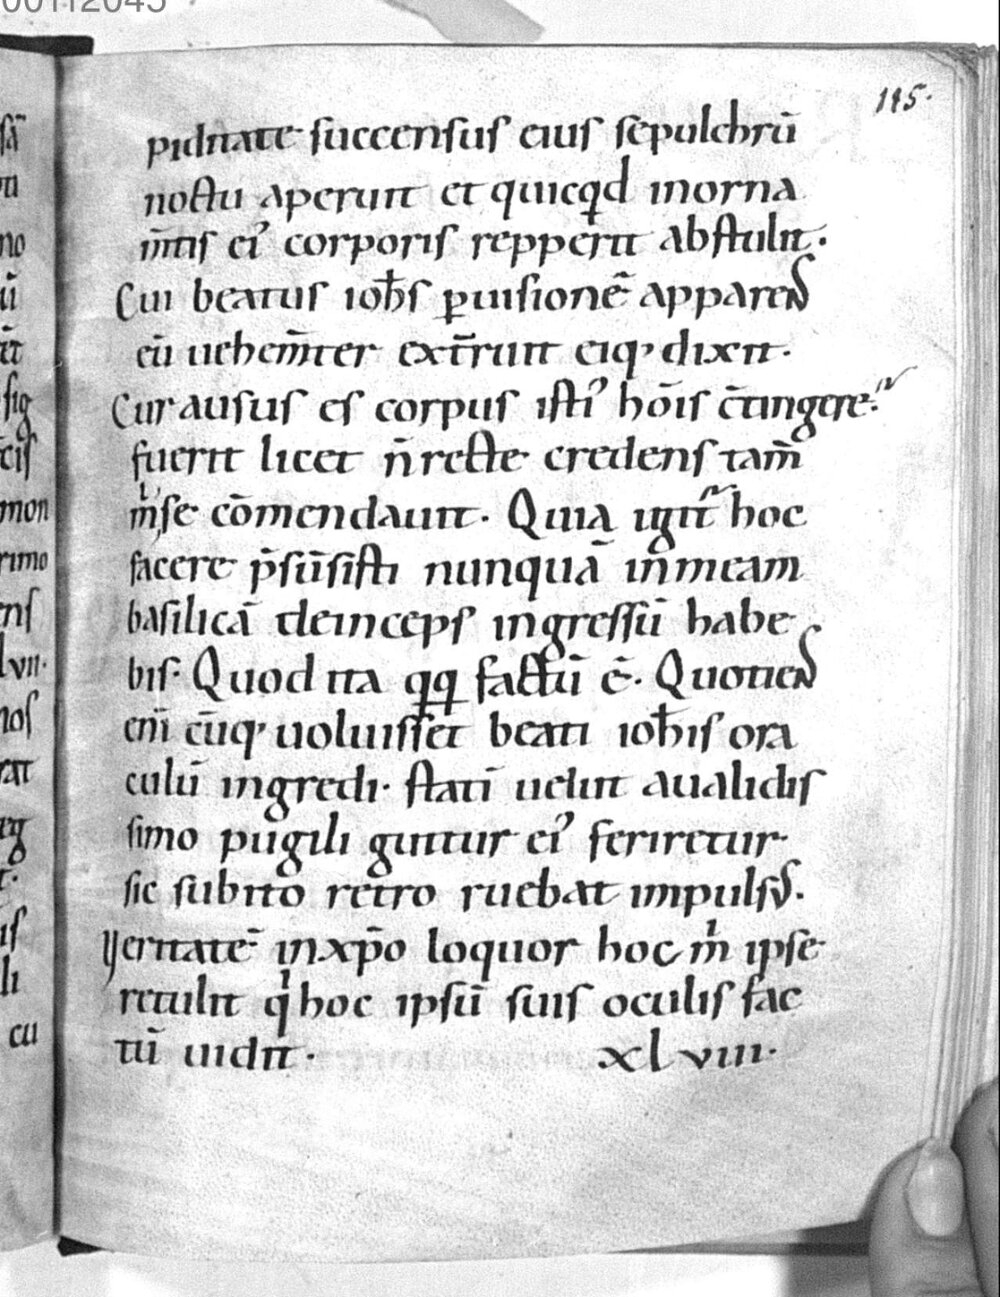 115.
piditate succensus eius sepulchrū
noctu aperuit et quicqd inorna
m̄tis ei᾽ corporis repperit abstulit.
Cui beatus ioh̄s p̱uisionē apparens
cū uehem̄ter ext̄ruit eiq᾽ dixit.
Cur ausus es corpus isti᾽ hōis c̄tingere?
fuerit licet n̄ recte credens tam̄
m̍se cōmendauit. Quia igit̃ hoc
facere p̄sūsisti nunquā in meam
basilicā deinceps ingressū habe
bis. Quod ita qq factū ē. Quotiens
eni̅ cūq᾽ uoluisset beati ioh̄is ora
culū ingredi. stati̅ uelut a ualidis
simo pugili guttur ei᾽ feriretur
sic subito retro ruebat impulsus.
Ueritatē in xp̄o loquor hoc m̍ ipse
retulit q̍ hoc ipsū suis oculis fac
tū uidit. xlviii.